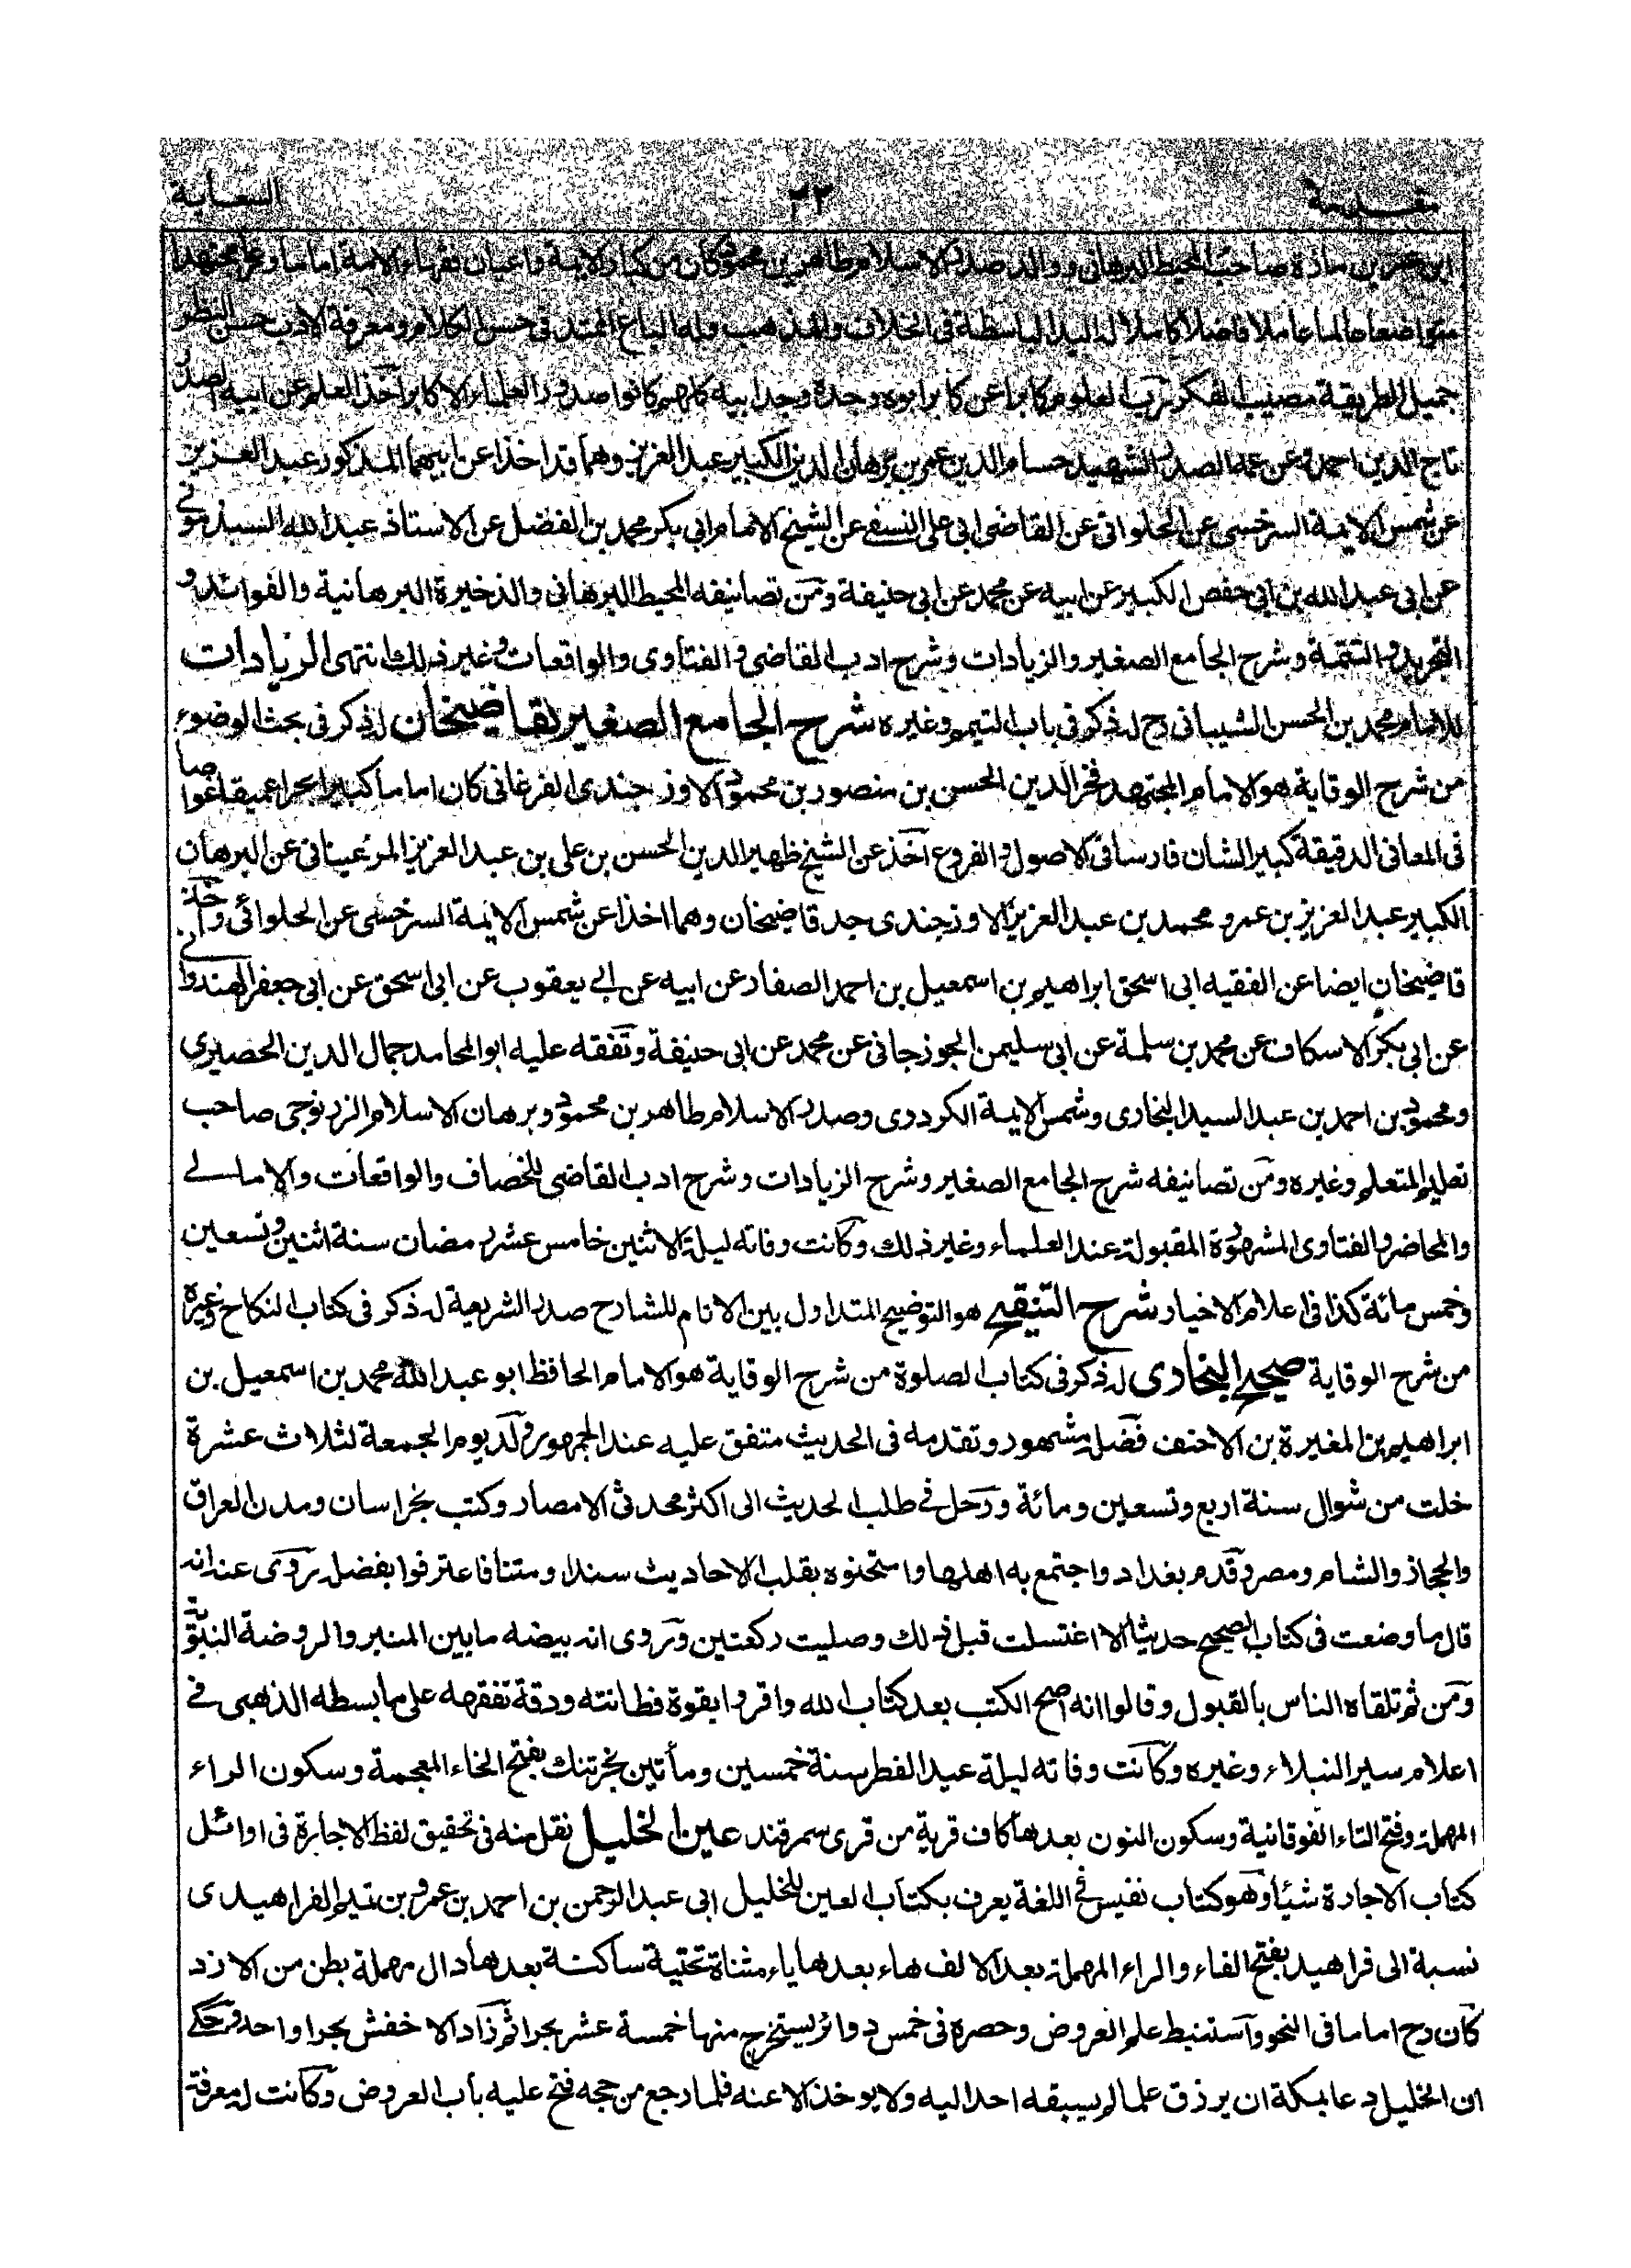 مقدمة ٣٣ السعاية
ابن عمر بن مازة صاحب المحيط البرهانى ووالد صدر الاسلام طاهر بن محمود كان من كبار الايمة واعيان فقهاء الامة اماما ورعا مجتهدا
متواضعا عالما عاملا فاضلا كاملا له اليد الباسطة فى الخلاف والمذهب وله الباع الممتد فى حسن الكلام ومعرفة الادب حسن النظر
جميل الطريقة مصيب الفكر ورث العلوم كابرا عن كابر ابوه وجده وجد ابيه كلهم كانوا صدور العلماء الاكابر اخذ العلم عن ابيه الصدر
تاج الدين احمد وعن عمه الصدر الشهيد حسام الدين عمر بن برهان الدين الكبير عبد العزيز وهما قد اخذا عن ابيهما المذكور عبد العزيز
عن شمس الايمة السرخسى عن الحلوانى عن القاضى ابى على النسفى عن الشيخ الامام ابى بكر محمد بن الفضل عن الاستاذ عبد الله السبذمونى
عن ابى عبد الله بن ابى حفص الكبير عن ابيه عن محمد عن ابى حنيفة ومن تصانيفه المحيط البرهانى والذخيرة البرهانية والفوائد و
التجريد والتتمة وشرح الجامع الصغير والزيادات وشرح ادب القاضى والفتاوى والواقعات وغير ذلك انتهى الزيادات
للامام محمد بن الحسن الشيبانى رح له ذكر فى باب التيمم وغيره شرح الجامع الصغير لقاضيخان له ذكر فى بحث الوضوء
من شرح الوقاية هو الامام المجتهد فخر الدين الحسن بن منصور بن محمود الاوزجندى الفرغانى كان اماما كبيرا بحرا عميقا غواصا
فى المعانى الدقيقة كبير الشان فارسا فى الاصول والفروع اخذ عن الشيخ ظهير الدين الحسن بن على بن عبد العزيز المرغينانى عن البرهان
الكبير عبد العزيز بن عمر ومحمد بن عبد العزيز الاوزجندى جد قاضيخان وهما اخذا عن شمس الايمة السرخسى عن الحلوائى واخذ
قاضيخان ايضا عن الفقيه ابى اسحق ابراهيم بن اسمعيل بن احمد الصفار عن ابيه عن ابى يعقوب عن ابى اسحق عن ابى جعفر الهندوانى
عن ابى بكر الاسكاف عن محمد بن سلمة عن ابى سليمن الجوزجانى عن محمد عن ابى حنيفة وتفقه عليه ابو المحامد جمال الدين الحصيرى
ومحمود بن احمد بن عبد السيد البخارى وشمس الايمة الكردرى وصدر الاسلام طاهر بن محمود وبرهان الاسلام الزرنوجى صاحب
تعليم المتعلم وغيره ومن تصانيفه شرح الجامع الصغير وشرح الزيادات وشرح ادب القاضى للخصاف والواقعات والامالى
والمحاضر والفتاوى المشهورة المقبولة عند العلماء وغير ذلك وكانت وفاته ليلة الاثنين خامس عشر رمضان سنة اثنين وتسعين
وخمس مائة كذا فى اعلام الاخيار شرح التنقيح هو التوضيح المتداول بين الانام للشارح صدر الشريعة له ذكر فى كتاب النكاح وغيره
من شرح الوقاية صحيح البخارى له ذكر فى كتاب الصلوة من شرح الوقاية هو الامام الحافظ ابو عبد الله محمد بن اسمعيل بن
ابراهيم بن المغيرة بن الاحنف فضله مشهور وتقدمه فى الحديث متفق عليه عند الجمهور ولد يوم الجمعة لثلاث عشرة
خلت من شوال سنة اربع وتسعين ومائة ورحل فى طلب الحديث الى اكثر محدثى الامصار وكتب بخراسان ومدن العراق
والحجاز والشام ومصر وقدم بغداد واجتمع به اهلها وامتحنوه بقلب الاحاديث سندا ومتنا فاعترفوا بفضله روى عنه انه
قال ما وضعت فى كتاب الصحيح حديثا الا اغتسلت قبل ذلك وصليت ركعتين وروى انه بيضه ما بين المنبر والروضة النبوية
ومن ثم تلقاه الناس بالقبول وقالوا انه اصح الكتب بعد كتاب الله واقروا بقوة فطانته ودقة تفقهه على ما بسطه الذهبى فى
اعلام سير النبلاء وغيره وكانت وفاته ليلة عيد الفطر سنة خمسين ومأتين بخرتنك بفتح الخاء المعجمة وسكون الراء
المهملة وفتح التاء الفوقانية وسكون النون بعدها كاف قرية من قرى سمرقند عين الخليل نقل منه فى تحقيق لفظ الاجارة فى اوائل
كتاب الاجارة شيئا وهو كتاب نفيس فى اللغة يعرف بكتاب العين للخليل ابى عبد الرحمن بن احمد بن عمرو بن تميم الفراهيدى
نسبة الى فراهيد بفتح الفاء والراء المهملة بعد الالف هاء بعدها ياء مثناة تحتية ساكنة بعدها دال مهملة بطن من الازد
كان رح اماما فى النحو واستنبط علم العروض وحصره فى خمس دوائر يستخرج منها خمسة عشر بحرا ثم زاد الاخفش بحرا واحد وحكى
ان الخليل دعا بمكة ان يرزق علما لم يسبقه احد اليه ولا يوخذ الا عنه فلما رجع من حجه فتح عليه باب العروض وكانت له معرفة